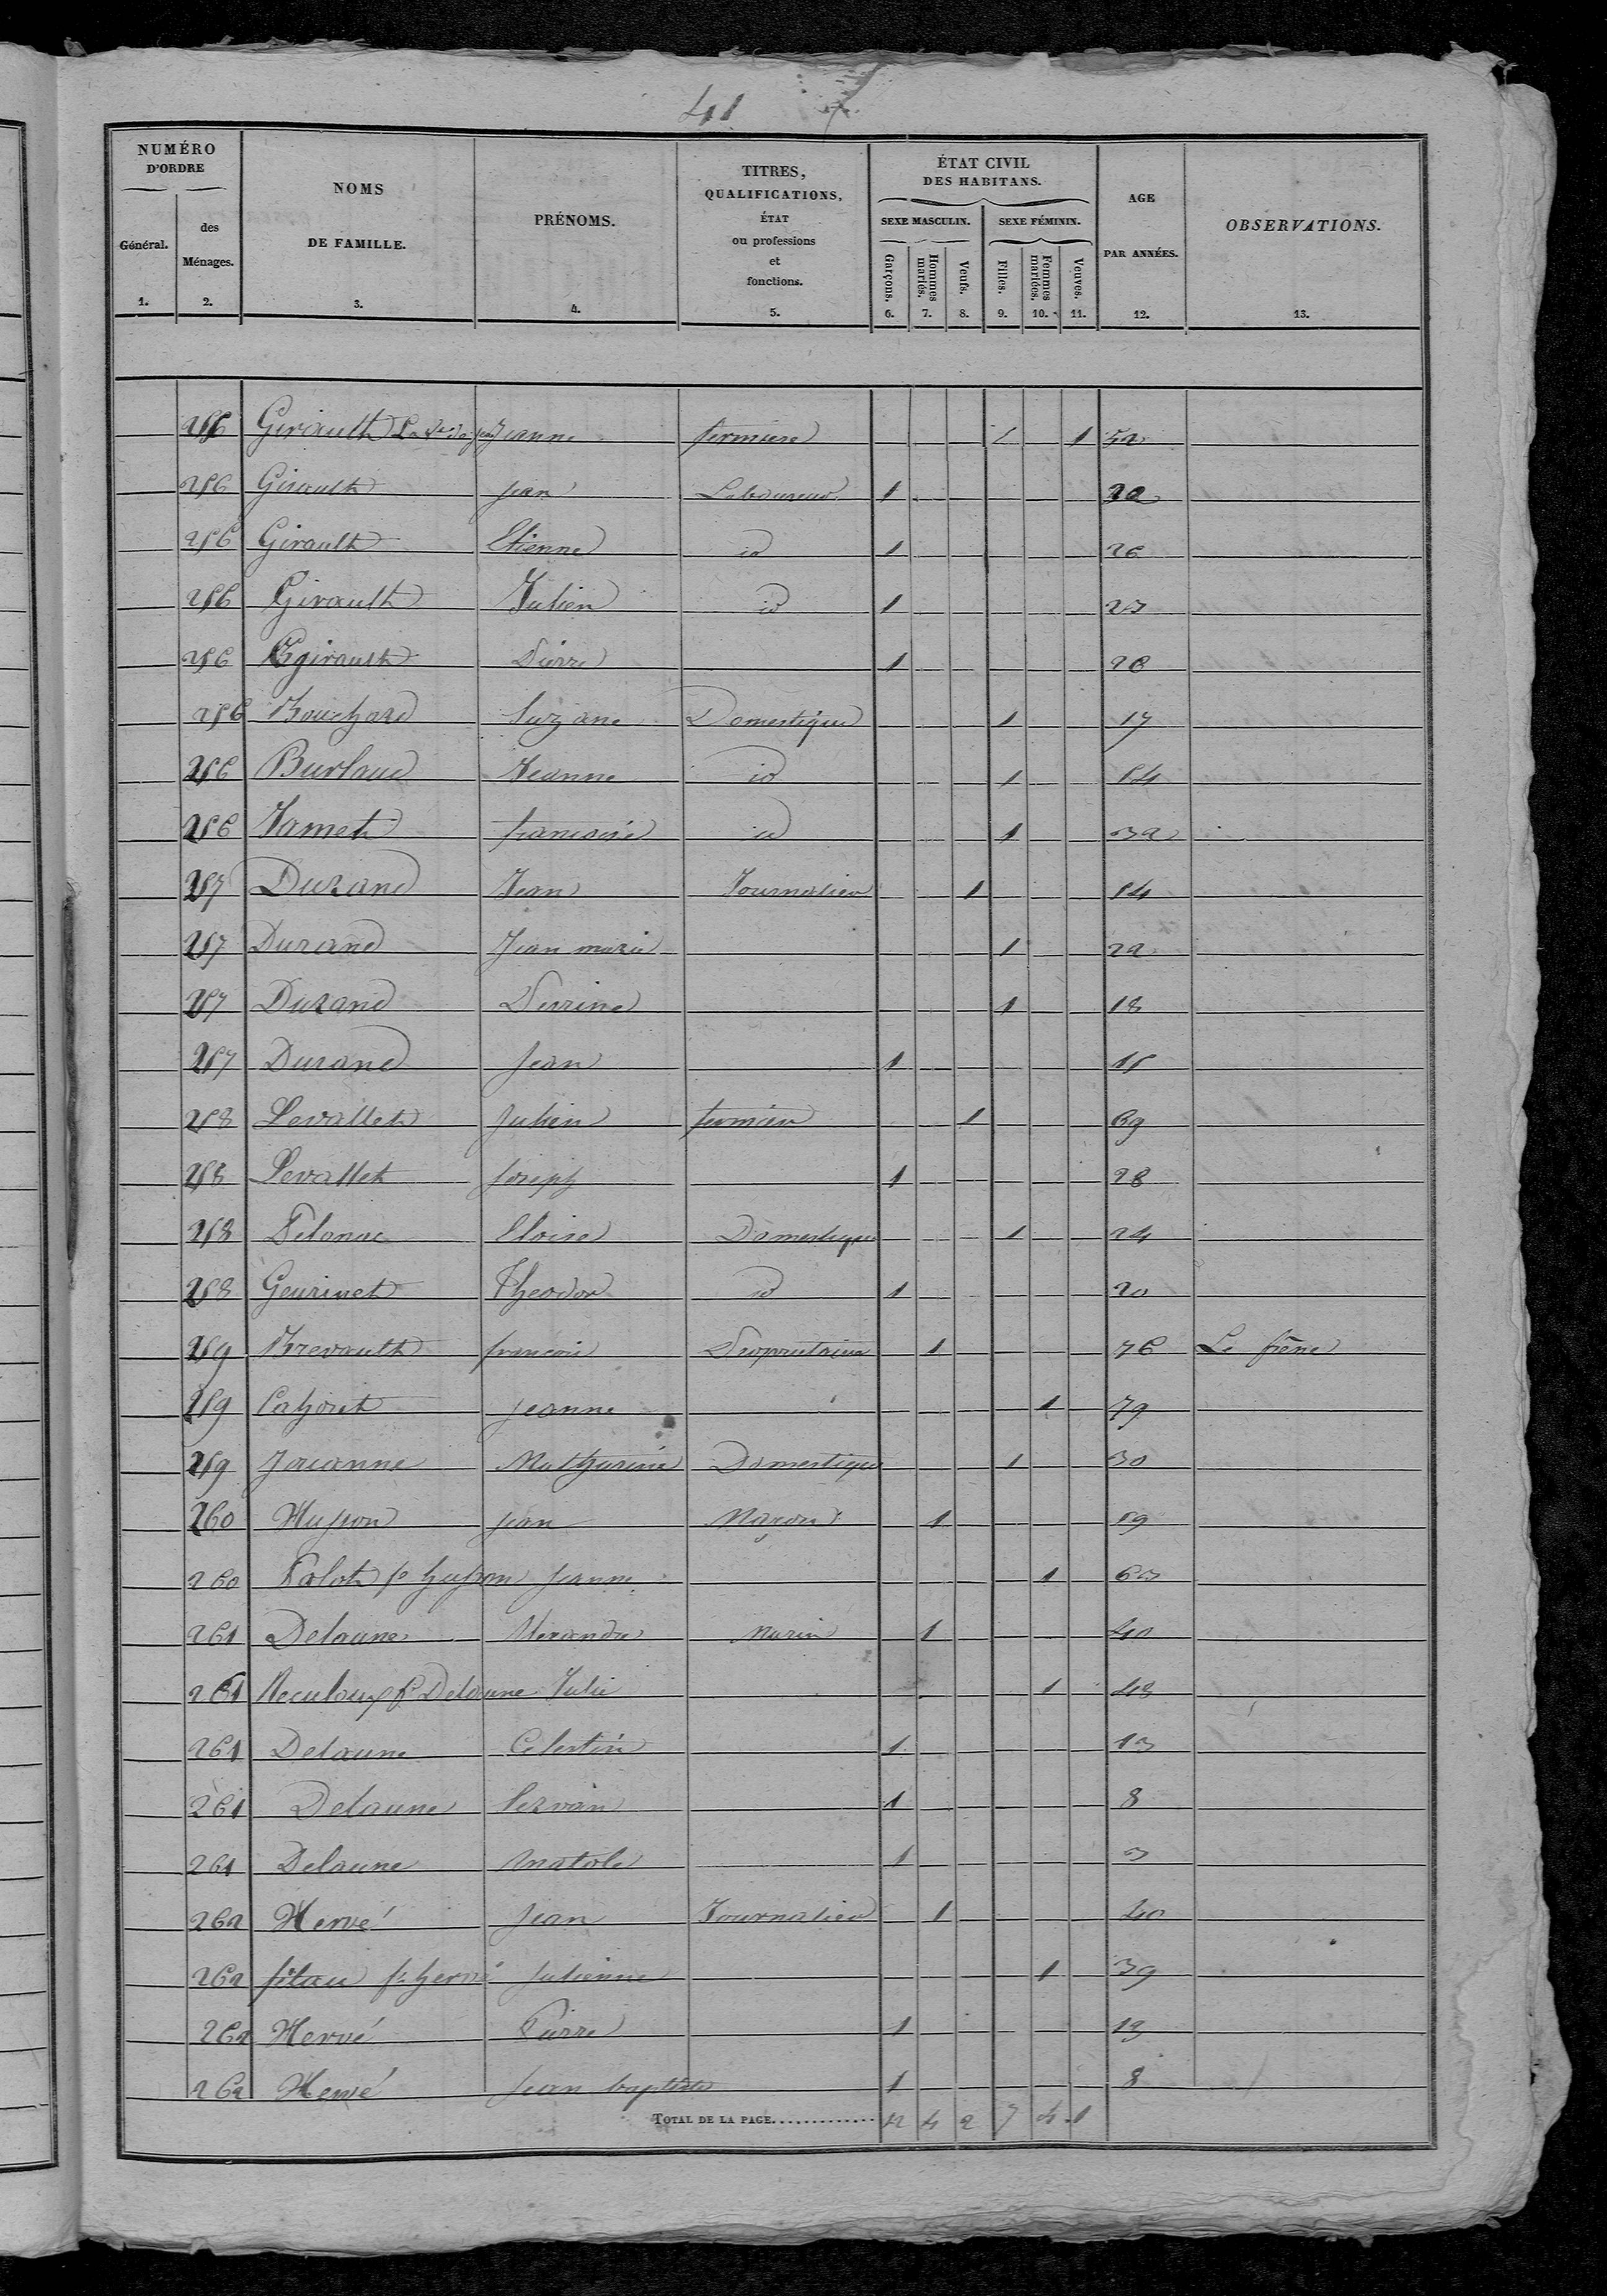 41
NUMÉRO D'ORDRE
Général. 1.
des Ménages. 2.
NOMS DE FAMILLE. 3.
PRÉNOMS. 4.
TITRES, QUALIFICATIONS, ÉTAT ou professions et fonctions. 5.
ÉTAT CIVIL DES HABITANS.
SEXE MASCULIN.
Garçons. 6.
Hommes mariés. 7.
Veufs. 8.
SEXE FÉMININ.
Filles. 9.
Femmes mariées. 10.
Veuves. 11.
AGE PAR ANNÉES. 12.
OBSERVATIONS. 13.
256 Girault Jeanne fermiere 1 52
256 Girault Jean Laboureur 1
256 Girault Etienne id 1 26
256 Girault Julien id 1 23
256 girault Pierre 1
256 Bouchard Suzane Domestique 1 17
256 Burlaud Jeanne id 1 14
256 Jamet francoise id 1 32
257 Durand Jean Journalier 1 54
257 Durand Jean marie 1 22
257 Durand Perrine 1 18
257 Durand Jean 1 15
258 Levallet Julien fermier 1 69
258 Levallet Joseph 1 28
258 Eloise Domestique 1 24
258 Geurinet Theodor id 1 20
259 Brevault francois Propriétaire 1 76 Le frêne
259 Cahoret Jeanne 1 79
259 Jouanne Mathurine Domestique 1 30
260 Husson Jean Maçon 1 59
260 Palot fe husson Jeanne 1 63
261 Delaune Alexandre Marin 1 40
261 fe Delaune Julie 1 43
261 Delaune Celestin 1 13
261 Delaune Servan 1 8
261 Delaune Anatole 1 3
262 Hervé Jean Journalier 1 40
262 fe hervé Julienne 1 39
262 Hervé Pierre 1 13
262 Hervé Jean baptiste 1 8
TOTAL DE LA PAGE. 12 4 2 7 4 1